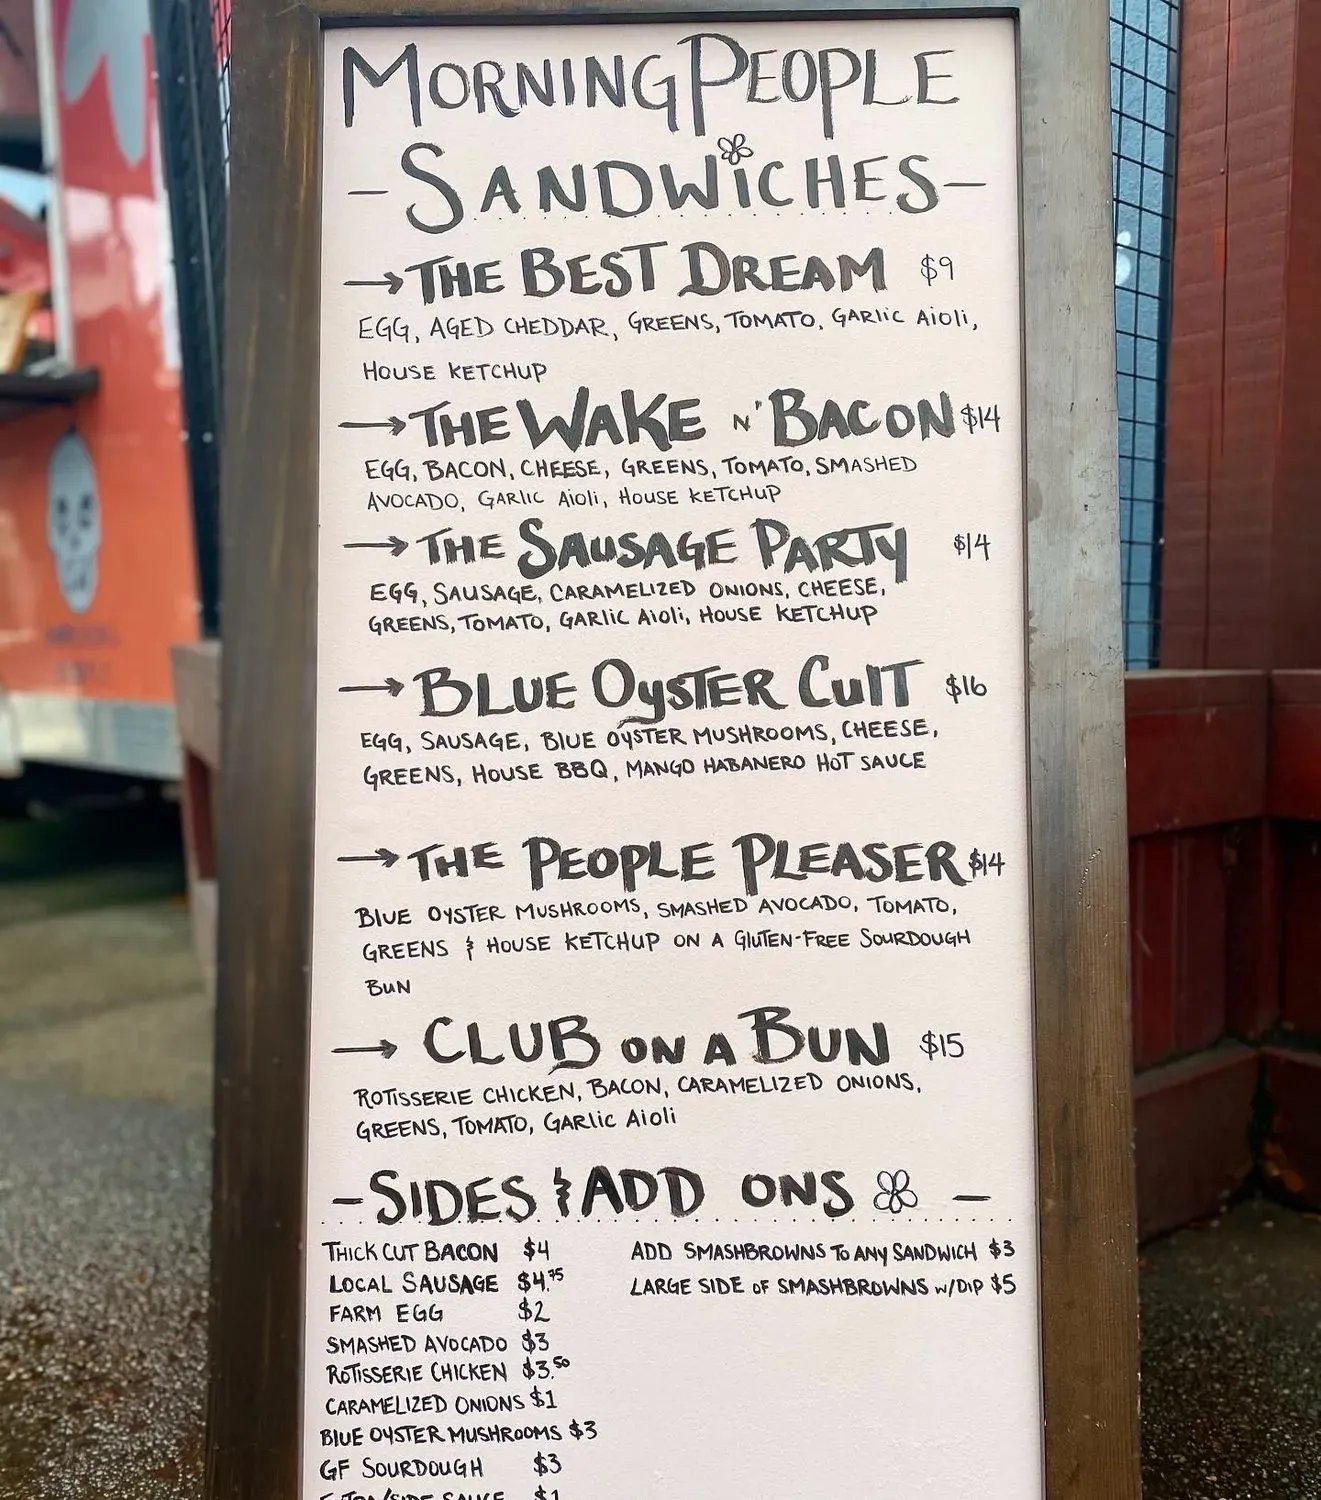 MORNING PEOPLE
- SANDWICHES -
→ THE BEST DREAM $9
EGG, AGED CHEDDAR, GREENS, TOMATO, GARLIC AIOLI,
HOUSE KETCHUP
→ THE WAKE N' BACON $14
EGG, BACON, CHEESE, GREENS, TOMATO, SMASHED
AVOCADO, GARLIC AIOLI, HOUSE KETCHUP
→ THE SAUSAGE PARTY $14
EGG, SAUSAGE, CARAMELIZED ONIONS, CHEESE,
GREENS, TOMATO, GARLIC AIOLI, HOUSE KETCHUP
→ BLUE OYSTER CULT $16
EGG, SAUSAGE, BLUE OYSTER MUSHROOMS, CHEESE,
GREENS, HOUSE BBQ, MANGO HABANERO HOT SAUCE
→ THE PEOPLE PLEASER $14
BLUE OYSTER MUSHROOMS, SMASHED AVOCADO, TOMATO,
GREENS & HOUSE KETCHUP ON A GLUTEN-FREE SOURDOUGH
BUN
→ CLUB ON A BUN $15
ROTISSERIE CHICKEN, BACON, CARAMELIZED ONIONS,
GREENS, TOMATO, GARLIC AIOLI
- SIDES & ADD ONS -
THICK CUT BACON $4
LOCAL SAUSAGE $4.75
FARM EGG $2
SMASHED AVOCADO $3
ROTISSERIE CHICKEN $3.50
CARAMELIZED ONIONS $1
BLUE OYSTER MUSHROOMS $3
GF SOURDOUGH $3
EXTRA/SIDE SAUCE $1
ADD SMASHBROWNS TO ANY SANDWICH $3
LARGE SIDE OF SMASHBROWNS W/DIP $5